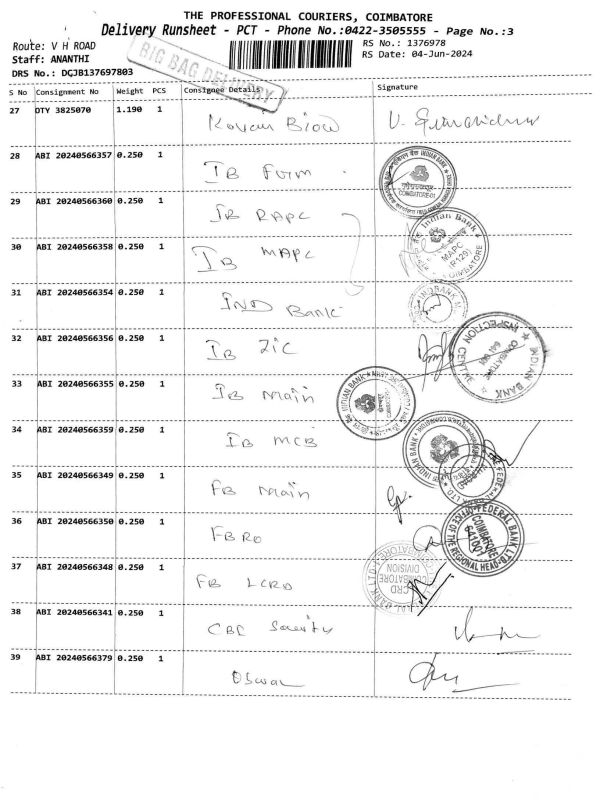 THE PROFESSIONAL COURIERS, COIMBATORE
Delivery Runsheet - PCT - Phone No.:0422-3505555 - Page No.:3
Route: V H ROAD
RS No.: 1376978
Staff: ANANTHI
RS Date: 04-Jun-2024
DRS No.: DCJB137697803
BIG BAG DELIVERY
S No Consignment No Weight PCS Consignee Details Signature
27 OTY 3825070 1.190 1
28 ABI 20240566357 0.250 1 IB Firm
INDIAN BANK
COIMBATORE-01
29 ABI 20240566360 0.250 1 IB RAPC
Indian Bank
MAPC
(R129)
COIMBATORE
30 ABI 20240566358 0.250 1 IB MAPC
31 ABI 20240566354 0.250 1 IND Bank
32 ABI 20240566356 0.250 1 IB ZIC
INDIAN BANK
INSPECTION CENTRE
COIMBATORE
641 001
33 ABI 20240566355 0.250 1 IB Main
INDIAN BANK
34 ABI 20240566359 0.250 1 IB MCB
INDIAN BANK
35 ABI 20240566349 0.250 1 FB Main
36 ABI 20240566350 0.250 1 FB RO
FEDERAL BANK LTD
OFFICE OF THE REGIONAL HEAD
COIMBATORE
37 ABI 20240566348 0.250 1 FB LCRD
CRD
COIMBATORE
DIVISION
38 ABI 20240566341 0.250 1
39 ABI 20240566379 0.250 1 Oswal